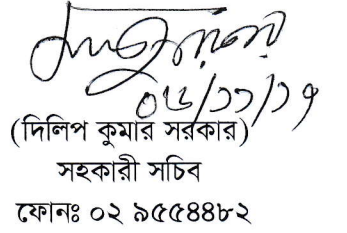 ০৬/১১/১৭
(দিলিপ কুমার সরকার)
সহকারী সচিব
ফোনঃ ০২ ৯৫৫৪৪৮২